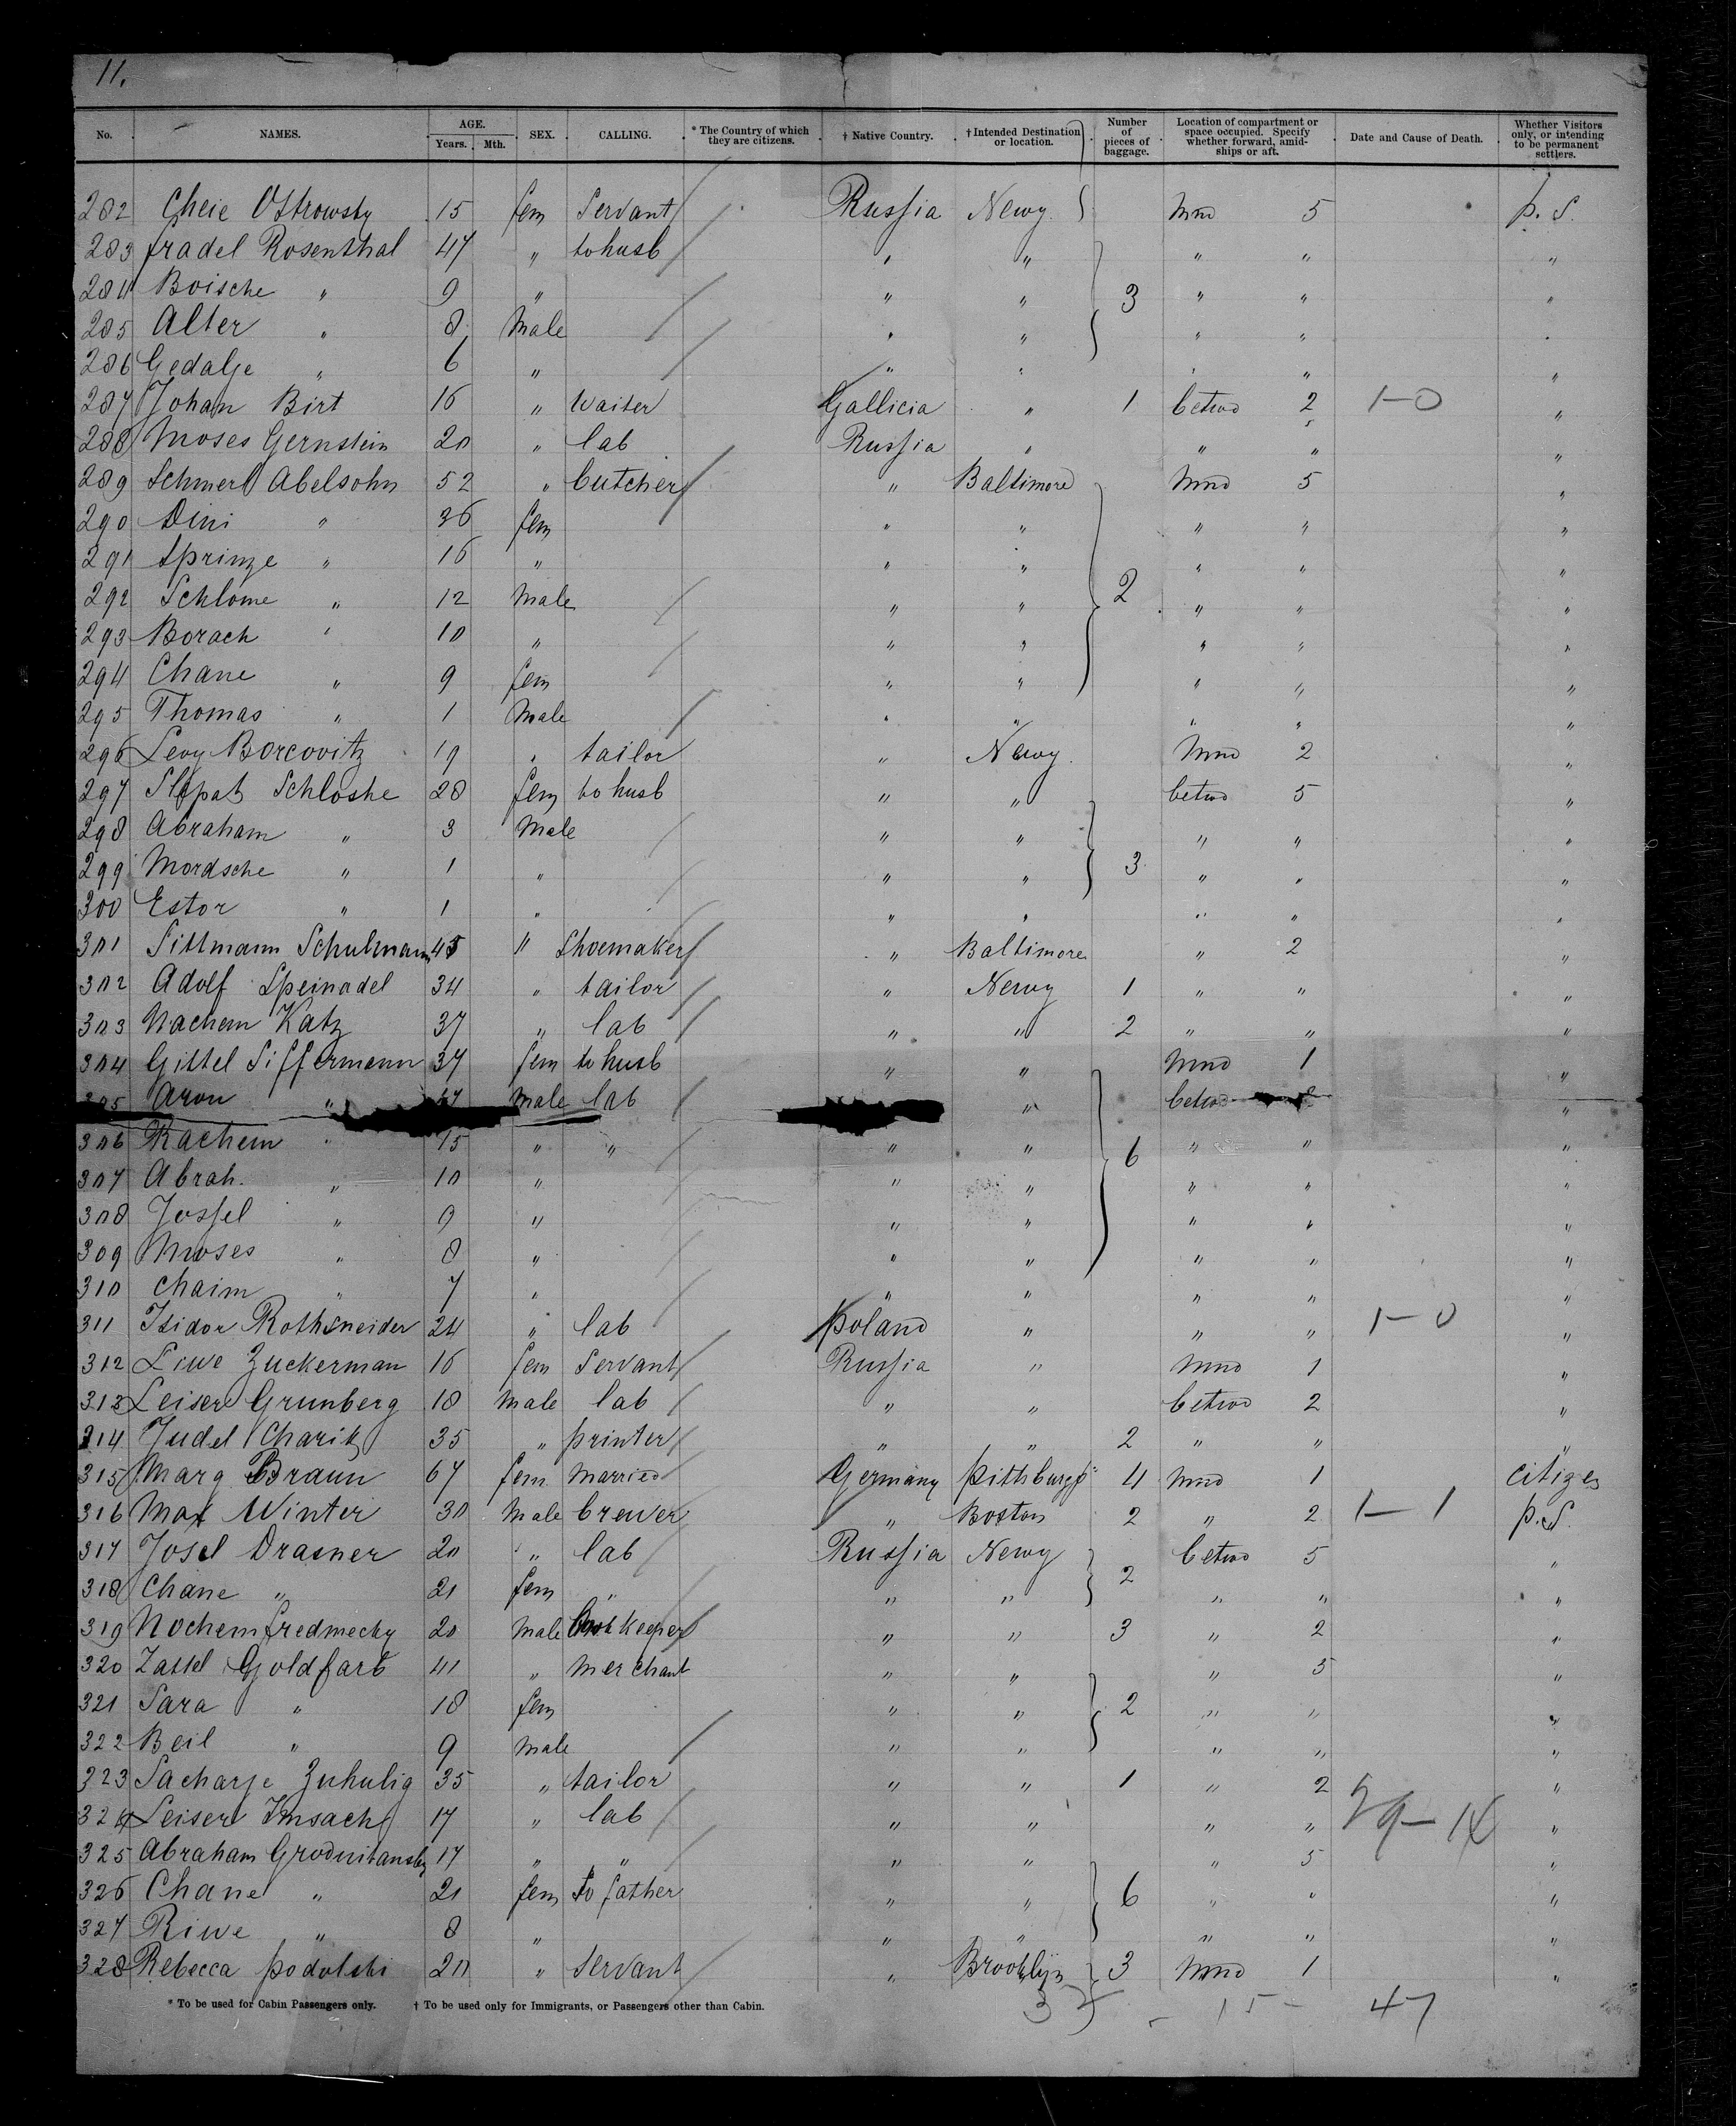 11.
No. NAMES. AGE. Years. Mth. SEX. CALLING. * The Country of which they are citizens. † Native Country. † Intended Destination or location. Number of pieces of baggage. Location of compartment or space occupied. Specify whether forward, amidships or aft. Date and Cause of Death. Whether Visitors only, or intending to be permanent settlers.
282 Cheie Ostrowsky 15 fem Servant Russia Newy. mnd 5 p. S.
283 fradel Rosenthal 47 " to husb " " " " "
284 Boische " 9 " " " 3 " " "
285 Alter " 8 Male " " " " "
286 Gedalje " 6 " " " " " "
287 Johan Birt 16 " waiter Gallicia " 1 betwd 2 1-0 "
288 Moses Gernstein 20 " lab Russia " " " "
289 Schmerl Abelsohn 52 " butcher " Baltimore mnd 5 "
290 Dini " 36 fem " " " " "
291 Sprinze " 16 " " " " " "
292 Schlome " 12 Male " " 2 " " "
293 Borach " 10 " " " " " "
294 Chane " 9 fem " " " " "
295 Thomas " 1 Male " " " " "
296 Levy Borcovitz 19 " tailor " Newy. mnd 2 "
297 Schloske 28 fem to husb " " betwd 5 "
298 Abraham " 3 Male " " " " "
299 Mordsche " 1 " " " 3 " " "
300 Estor " 1 " " " " " "
301 Sittmann Schulmann 45 " Shoemaker " Baltimore " 2 "
302 Adolf Speinadel 34 " tailor " Newy 1 " " "
303 Nachem Katz 37 " lab " " 2 " " "
304 Gittel Siffermann 37 fem to husb " " mnd 1 "
305 Aron " Male lab " betwd "
306 Rachem " 15 " " " " 6 " " "
307 Abrah. " 10 " " " " " "
308 Jossel " 9 " " " " " "
309 Moses " 8 " " " " " "
310 Chaim " 7 " " " " " "
311 Isidor Rothsneider 24 " lab Poland " " " 1-0 "
312 Liwe Zuckerman 16 fem Servant Russia " mnd 1 "
313 Leiser Grunberg 18 Male lab " " betwd 2 "
314 Judel Charik 35 " printer " " 2 " " "
315 Marg Braun 67 fem. married Germany Pittsburgh 4 mnd 1 Citizen
316 Max Winter 30 Male brewer " Boston 2 " 2 1-1 p. S.
317 Josel Drasner 20 " lab Russia Newy betwd 5 "
318 Chane " 21 fem " " " 2 " " "
319 Nochem fredmecky 20 Male Bookkeeper " " 3 " 2 "
320 Zassel Goldfarb 41 " merchant " " " 5 "
321 Sara " 18 fem " " 2 " " "
322 Beil " 9 Male " " " " "
323 Sacharje Zuhulig 35 " tailor " " 1 " 2 "
324 Leiser 17 " lab " " " " 29-14 "
325 Abraham Grodnitansky 17 " " " " " 5 "
326 Chane " 21 fem To father " " 6 " " "
327 Riwe " 8 " " " " " "
328 Rebecca Podolski 20 " Servant " Brooklyn 3 mnd 1 "
* To be used for Cabin Passengers only. † To be used only for Immigrants, or Passengers other than Cabin.
32 - 15 - 47